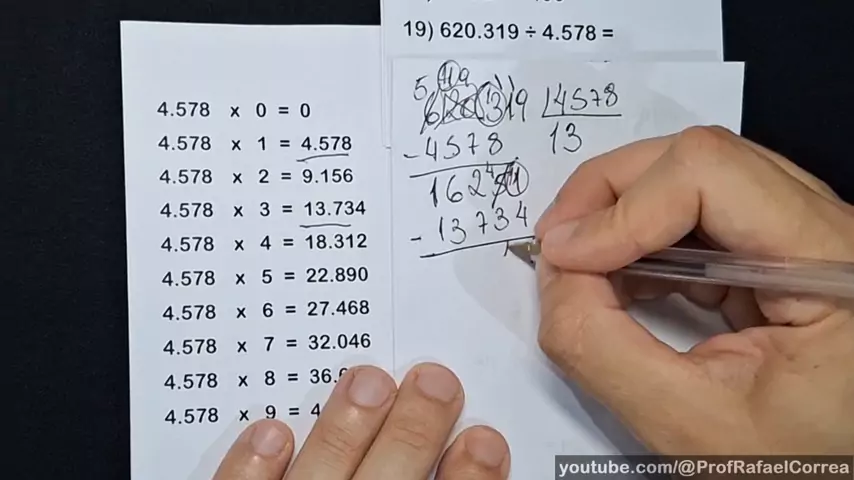 19) 620.319 ÷ 4.578 =
4.578 x 0 = 0
4.578 x 1 = 4.578
4.578 x 2 = 9.156
4.578 x 3 = 13.734
4.578 x 4 = 18.312
4.578 x 5 = 22.890
4.578 x 6 = 27.468
4.578 x 7 = 32.046
4.578 x 8 = 36.
4.578 x 9 = 4
5 11 9
620319 4578
-4578 13
162 11
-13734
youtube.com/@ProfRafaelCorrea